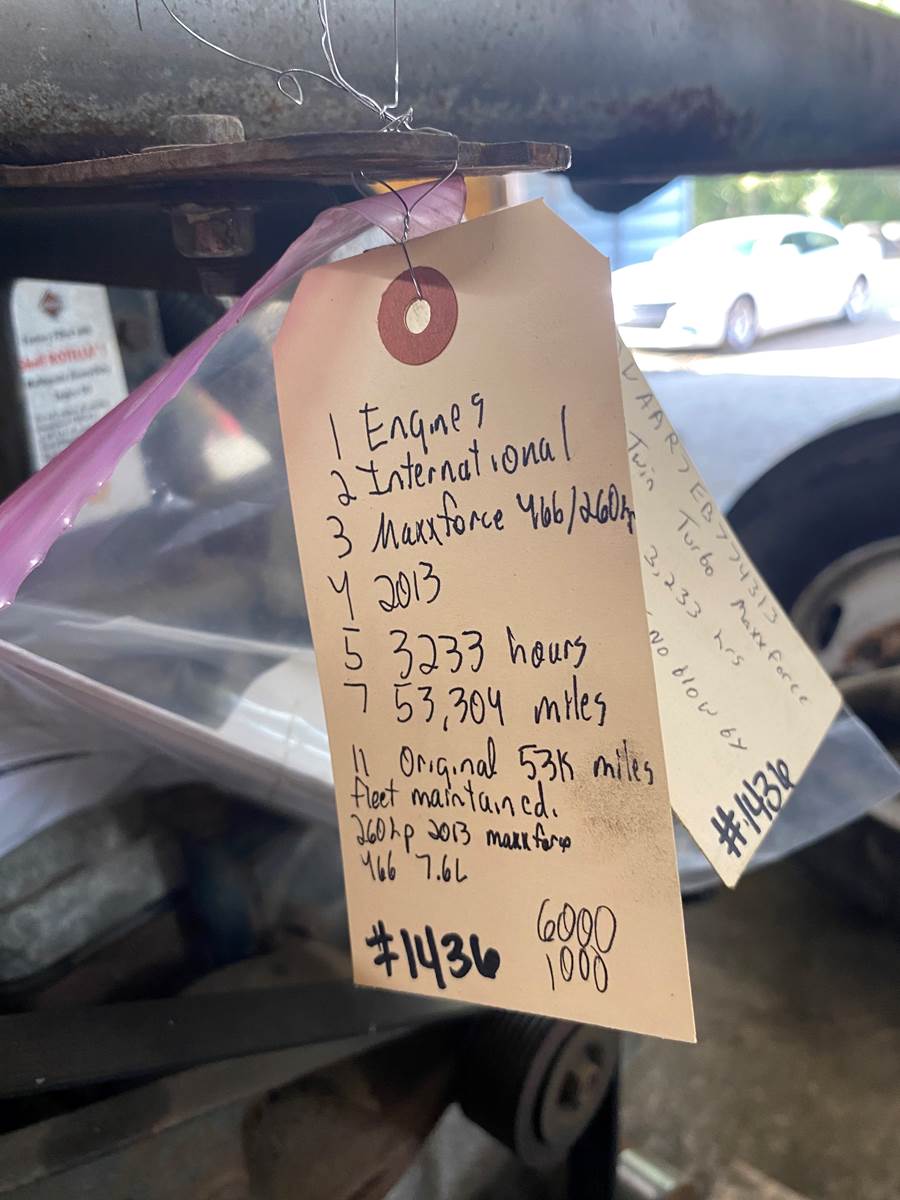 1 Engines
2 International
3 Maxxforce 466/260hp
4 2013
5 3233 hours
7 53,304 miles
11 Original 53K miles
fleet maintained.
260hp 2013 maxxforce
466 7.6L
#1436
6000
1000
EB774313
Twin Turbo Maxxforce
3,233 hrs
No blow by
#1436
ROTELLA